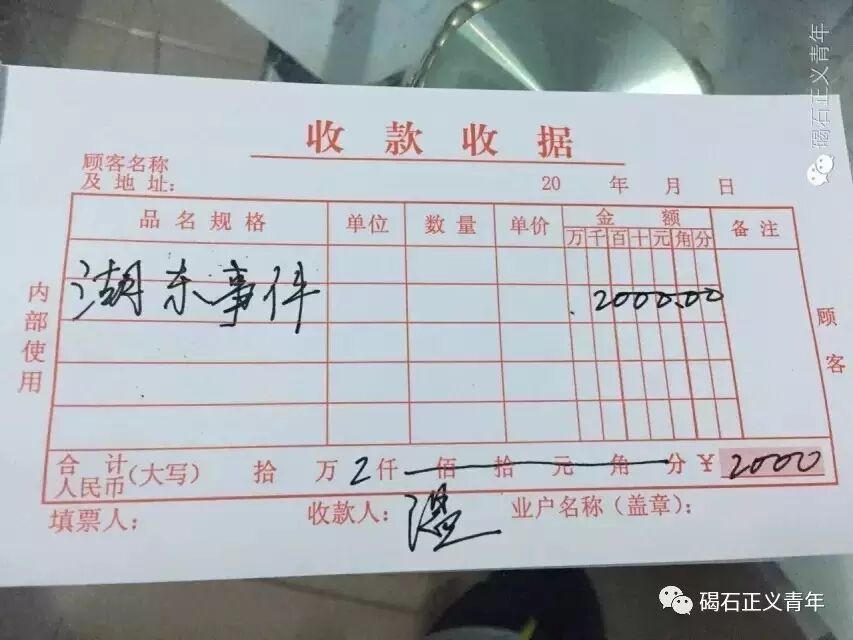 碣石正义青年
收款收据
顾客名称
及地址：
20 年 月 日
品名规格 单位 数量 单价 金额 备注
万千百十元角分
湖东事件 2000.00
内部使用
顾客
合计人民币(大写) 拾 万 2 仟 佰 拾 元 角 分 ¥ 2000
填票人： 收款人：温 业户名称（盖章）：
碣石正义青年